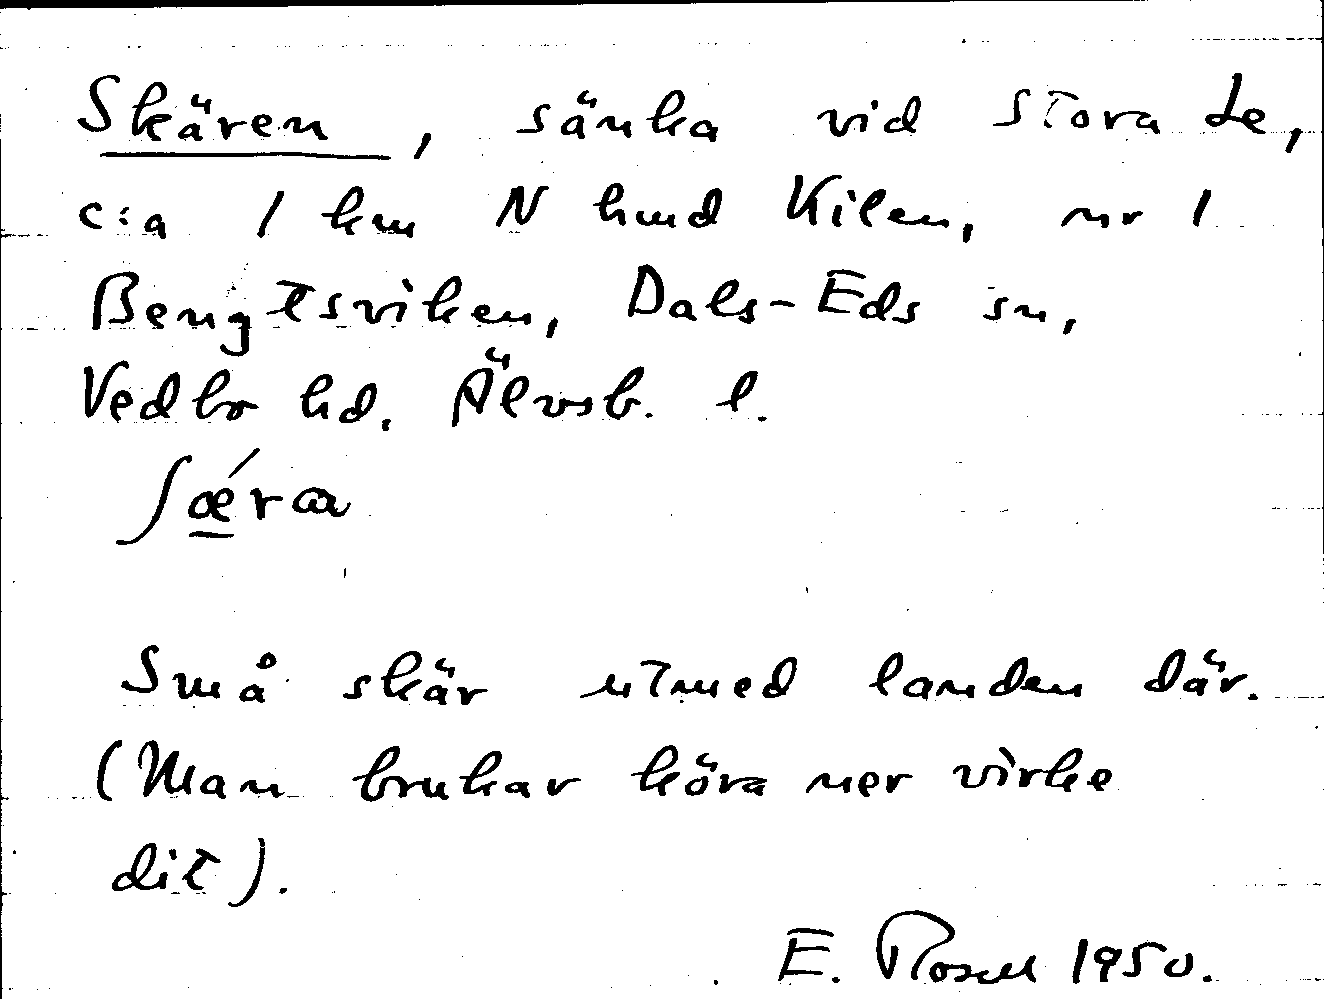 Skären, sänka vid Stora Le,
c:a 1 km N hmd Kilen, nr 1
Bengtsviken, Dals-Eds sn,
Vedbo hd. Älvsb. l.
ʃǽra
Små skär utmed landen där.
(Man brukar köra ner virke
dit).
E. Rosell 1950.